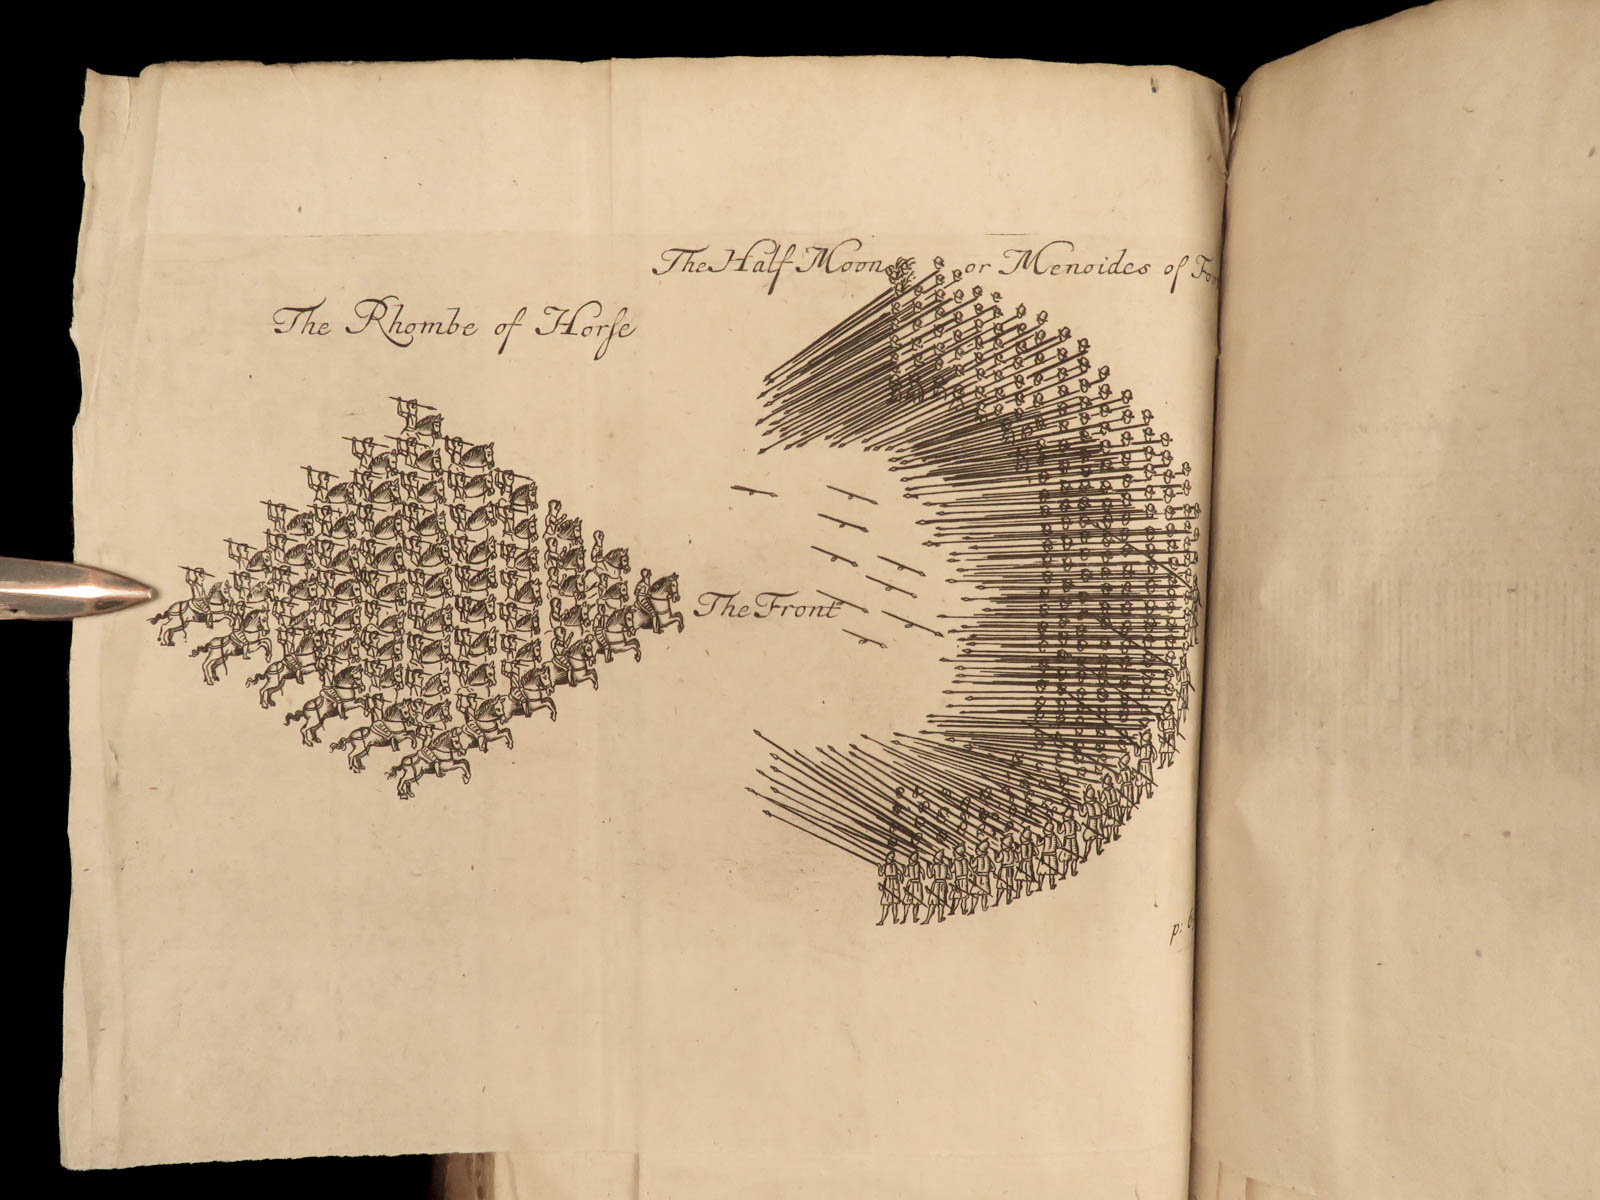 The Half Moon or Menoides of
The Rhombe of Horſe
The Front
p: